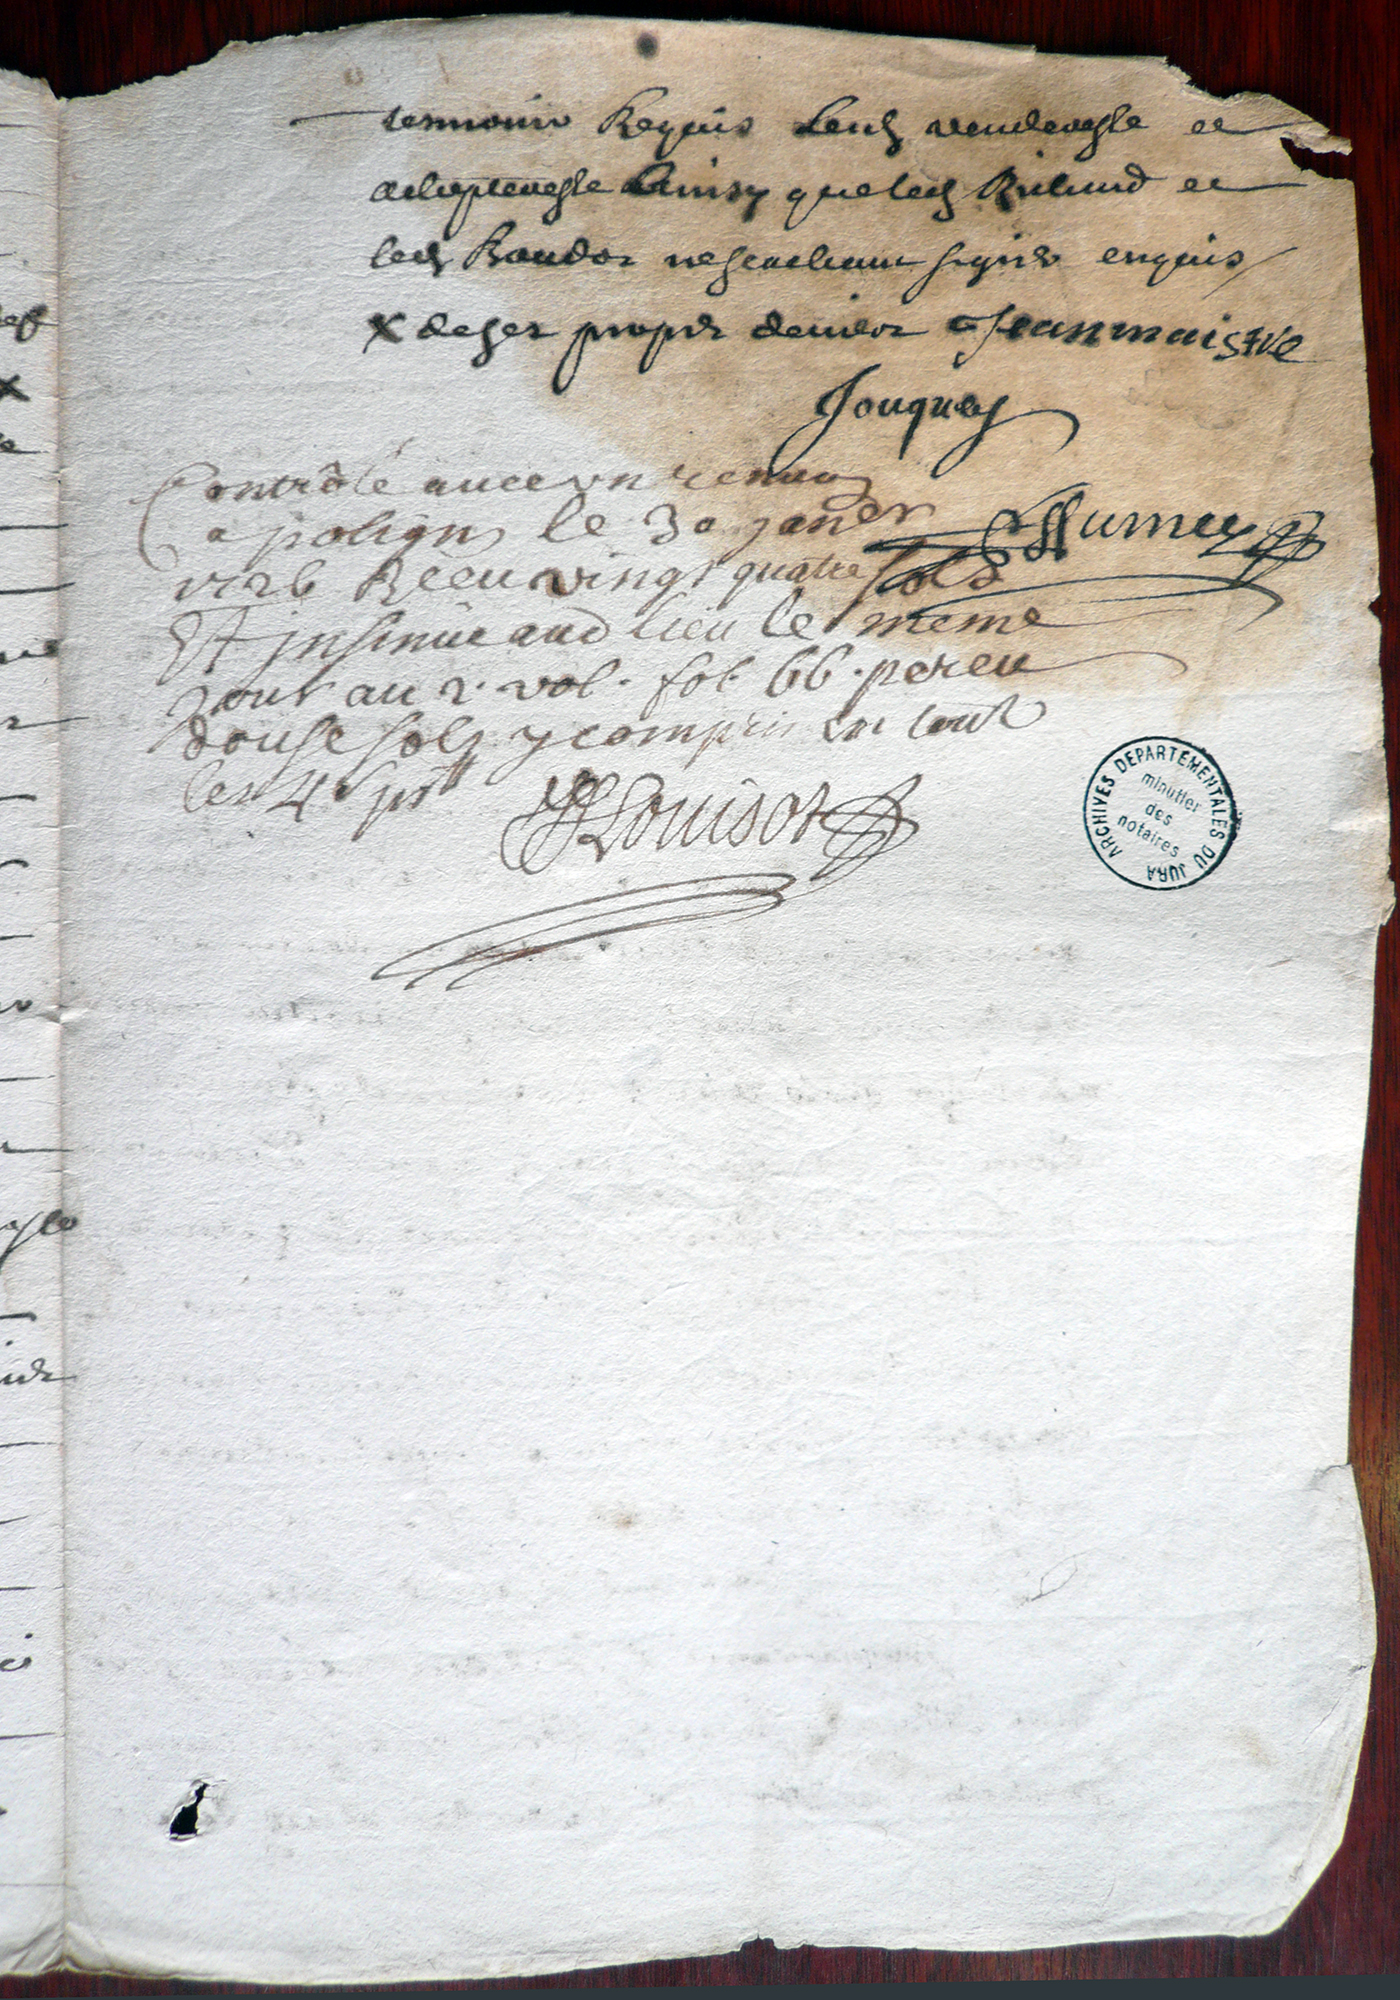 tesmoins Requis Lesd vendeurs et
achepteurs ainsy que led Richard et
led Baudot ne scachant signer enquis
x de ses propres deniers Jeanmaistre
Jouquey
Contrôlé avec un renvoy
a poligny le 30 janer
1726 Receu vingt quatre sols
Et insinué aud lieu le meme
Jour au 2. vol. fol. 66. perceu
douse sols y compris en tout
les 4s pr lt
Louisot
ARCHIVES DEPARTEMENTALES DU JURA
minutier
des
notaires